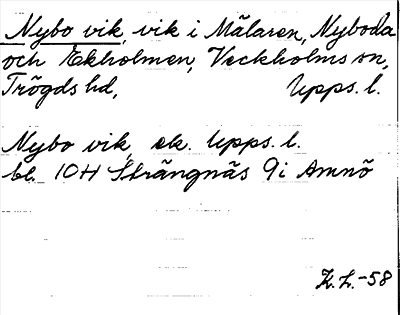 Nybo vik, vik i Mälaren, Nyboda
och Ekholmen, Veckholms sn,
Trögds hd, Upps. l.
Nybo vik, ek. Upps. l.
bl. 10H Strängnäs 9i Amnö
K.L.-58